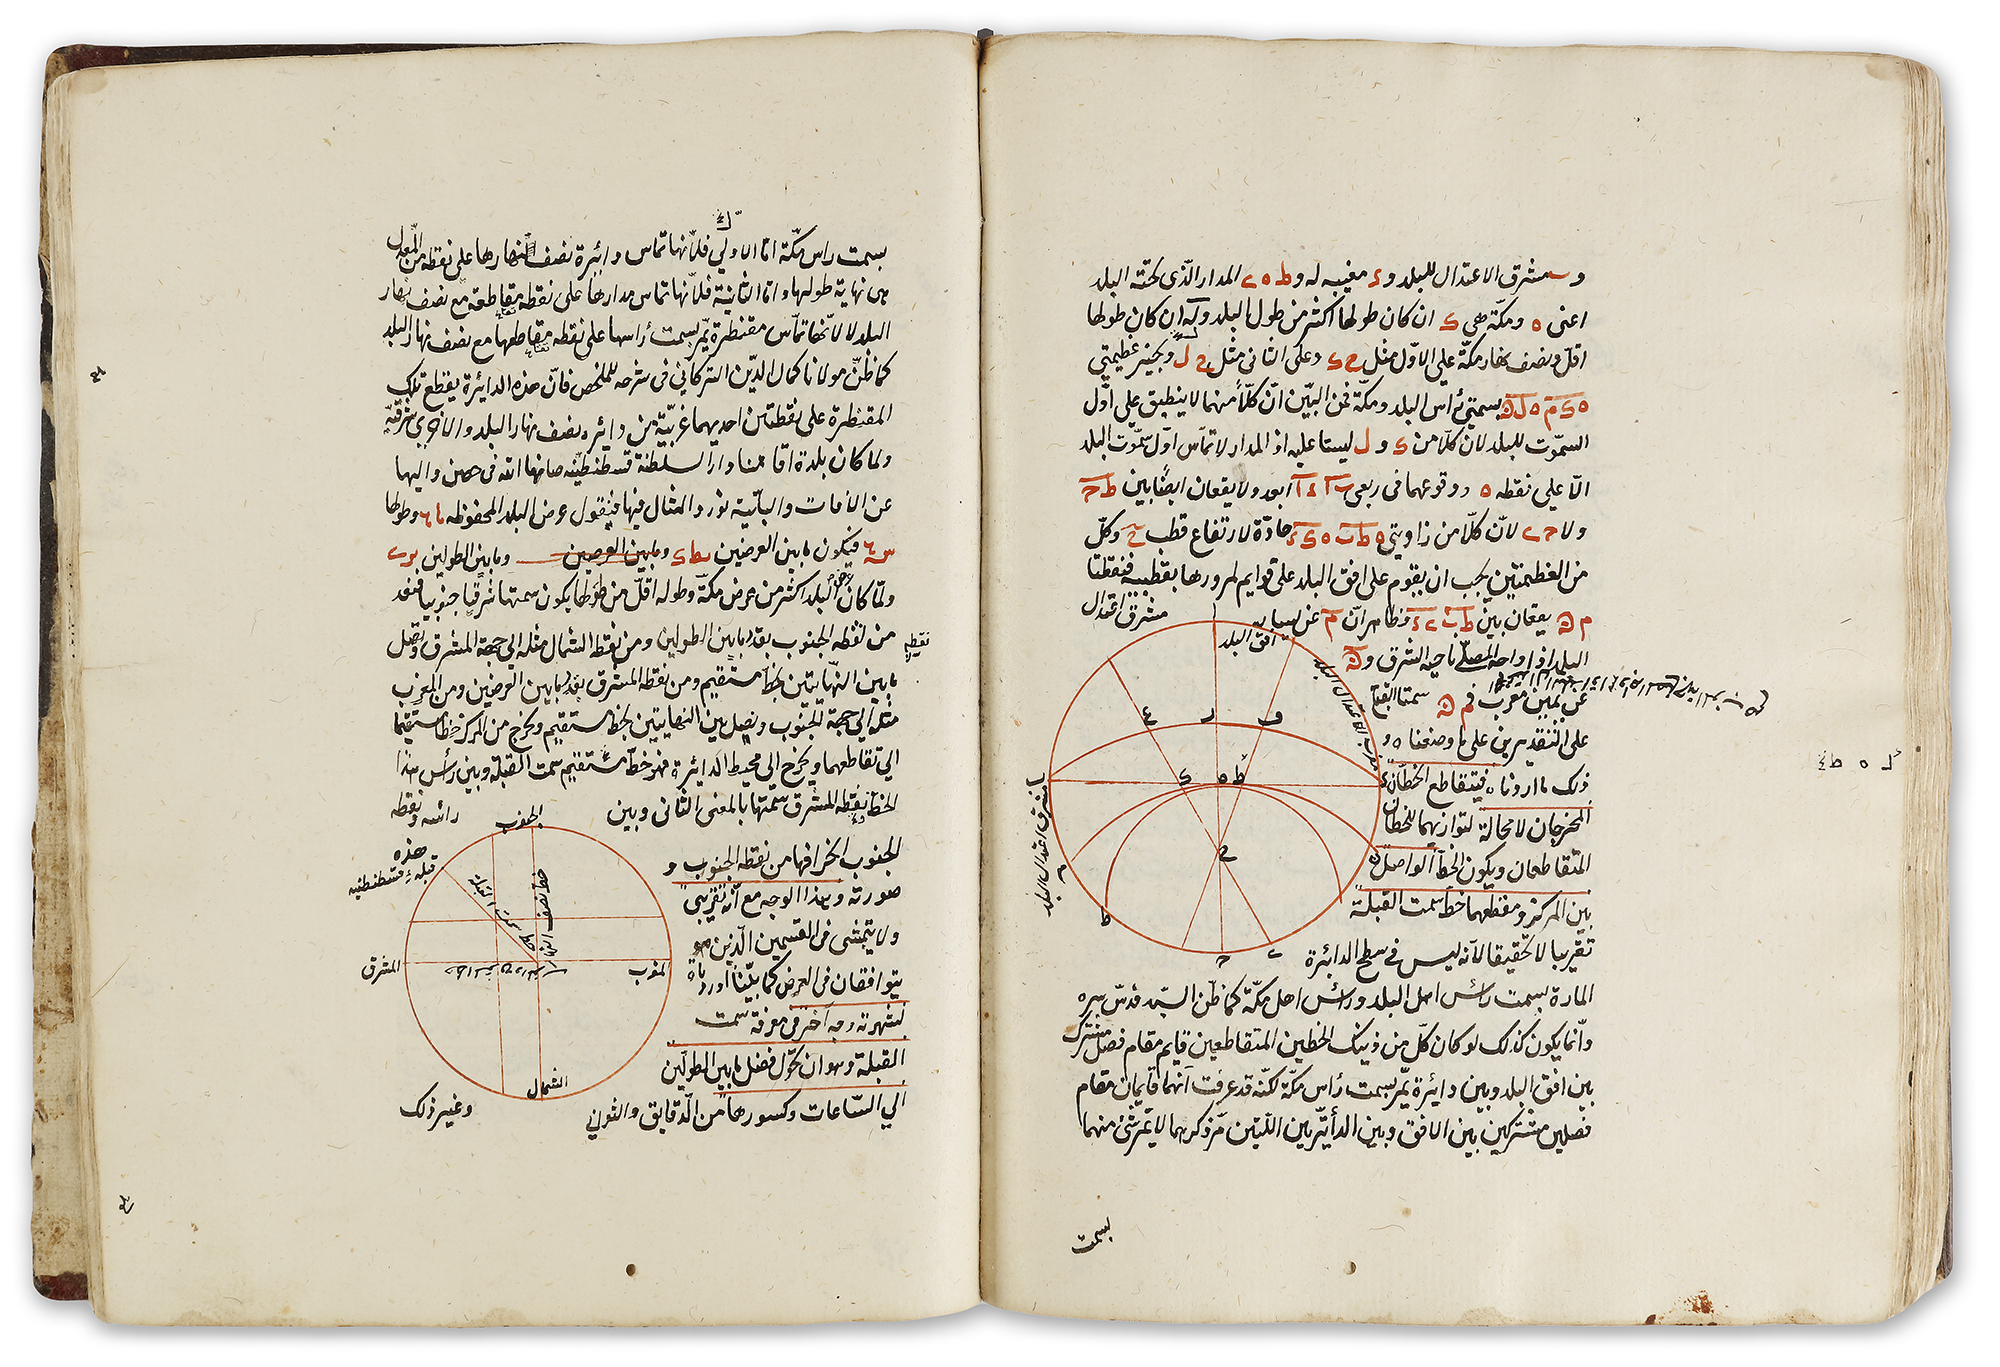 و مشرق الاعتدال للبلد و مغيبه له و ط ه ح المدار الذي تحته البلد
اعنى ه ومكة هى ى ان كان طولها اكثر من طول البلد و ان كان طولها
اقل ونصف نهار مكة على الاول مثل ح ى وعلى الثانى مثل ح ل وبجيز عظيمتي
بسمتي رأس البلد ومكة فمن البين ان كلاً منهما لا ينطبق على اوّل
السموت للبلد لان كلا من ى و ل ليستا عليه اذ المدار لا تماس اول سموت البلد
الّا على نقطه ه ووقوعهما فى ربعى ا ب ا د ابعد ولا يقعان ايضا بين ط ح
ولا ح ح لانّ كلا من زاويتي حادّة لارتفاع قطب ح وكلّ
من العظيمتين يجب ان يقوم على افق البلد على قوايم لمرورها بقطبيه فنقطتا
يقعان بين وظاهر انّ م عن يسار
مشرق اعتدال
البلد اذا واجه المصلى ناحية الشرق و
عن يمين مغرب سمتا القبلة
على التقديرين على ما وصفنا ه و
ذلك ما اردناه فيتقاطع الخطان
المخرجان لا محالة لتوازيهما للخطان
المتقاطعان ويكون الخط الواصل
بين المركز ومقطعهما خط سمت القبلة
تقريبا لا تحقيقا لانه ليس فى سطح الدايرة
المارة بسمت رأس اهل البلد ورأس اهل مكّة كما ظن السيّد قدّس سره
وانّما يكون كذلك لو كان كلّ من ذينك الخطين المتقاطعين قايم مقام فصل مشترك
بين افق البلد وبين دايرة يمرّ بسمت رأس مكّة لكنّه قد عرفت انهما قايمان مقام
فصلين مشتركين بين الافق وبين الدائرتين اللتين مرّ ذكرهما لا يمرّ شئ منهما
بسمت
افق البلد
مغرب الاعتدال للبلد
مشرق اعتدال البلد
بسمت راس مكّة امّا الاولي فلانها تماس دائرة نصف نهارها على نقطه من المعدل
هى نهاية طولها وامّا الثانية فلانها تماس مدارها على نقطه مقاطعة مع نصف نهار
البلد لا لانّها تماس مقنطرة يمرّ بسمت رأسها على نقطه مقاطعها مع نصف نهار البلد
كما ظنّ مولانا كمال الدّين التركاني فى شرحه للملخص فانّ هذه الدايرة يقطع تلك
المقنطرة على نقطتين احديهما غربيّة من دايره نصف نهار البلد والاخرى شرقيّة
ولما كان بلدة اقامتنا دار السلطنة قسطنطنيه صانها الله فى حصن واليها
عن الافات والبليّة نورد المثال فيها فنقول عرض البلد المحفوظه ما و وطولها
فيكون ما بين العرضين وما بين العرضين وما بين الطولين
ولمّا كان عرض البلد اكثر من عرض مكّة وطوله اقلّ من طولها يكون سمتها شرقيا جنوبيا فنعد
من نقطه الجنوب بقدر ما بين الطولين ومن نقطه الشمال مثله الي جهة المشرق ونصل
نقطه
ما بين النّهايتين بخطّ مستقيم ومن نقطه المشرق بقدر ما بين العرضين ومن المغرب
مثله الي جهة الجنوب ونصل بين النهايتين بخط مستقيم ونخرج من المركز خطا مستقيما
الي تقاطعهما ويخرج الي محيط الدايرة فهو خطّ مستقيم سمت القبلة وبين رأس هذا
الخط ونقطه المشرق سمتها بالمعنى الثانى وبين رائسه ونقطه
الجنوب انحرافها من نقطه الجنوب و هذه
صورته وهذا الوجه مع انّه تقريبى
ولا يتمشى فى القسمين الّذين هو
يتوافقان فى العرض كما بيّنا اوردناه
لشهرته وجه آخر فى معرفة سمت
القبلة وهو ان تحوّل فضل ما بين الطولين
الي السّاعات وكسورها من الدّقايق والثوانى وغير ذلك
الجنوب
قبلة قسطنطنيه
خط نصف النهار
خط سمت القبلة
المشرق
المغرب
الشمال